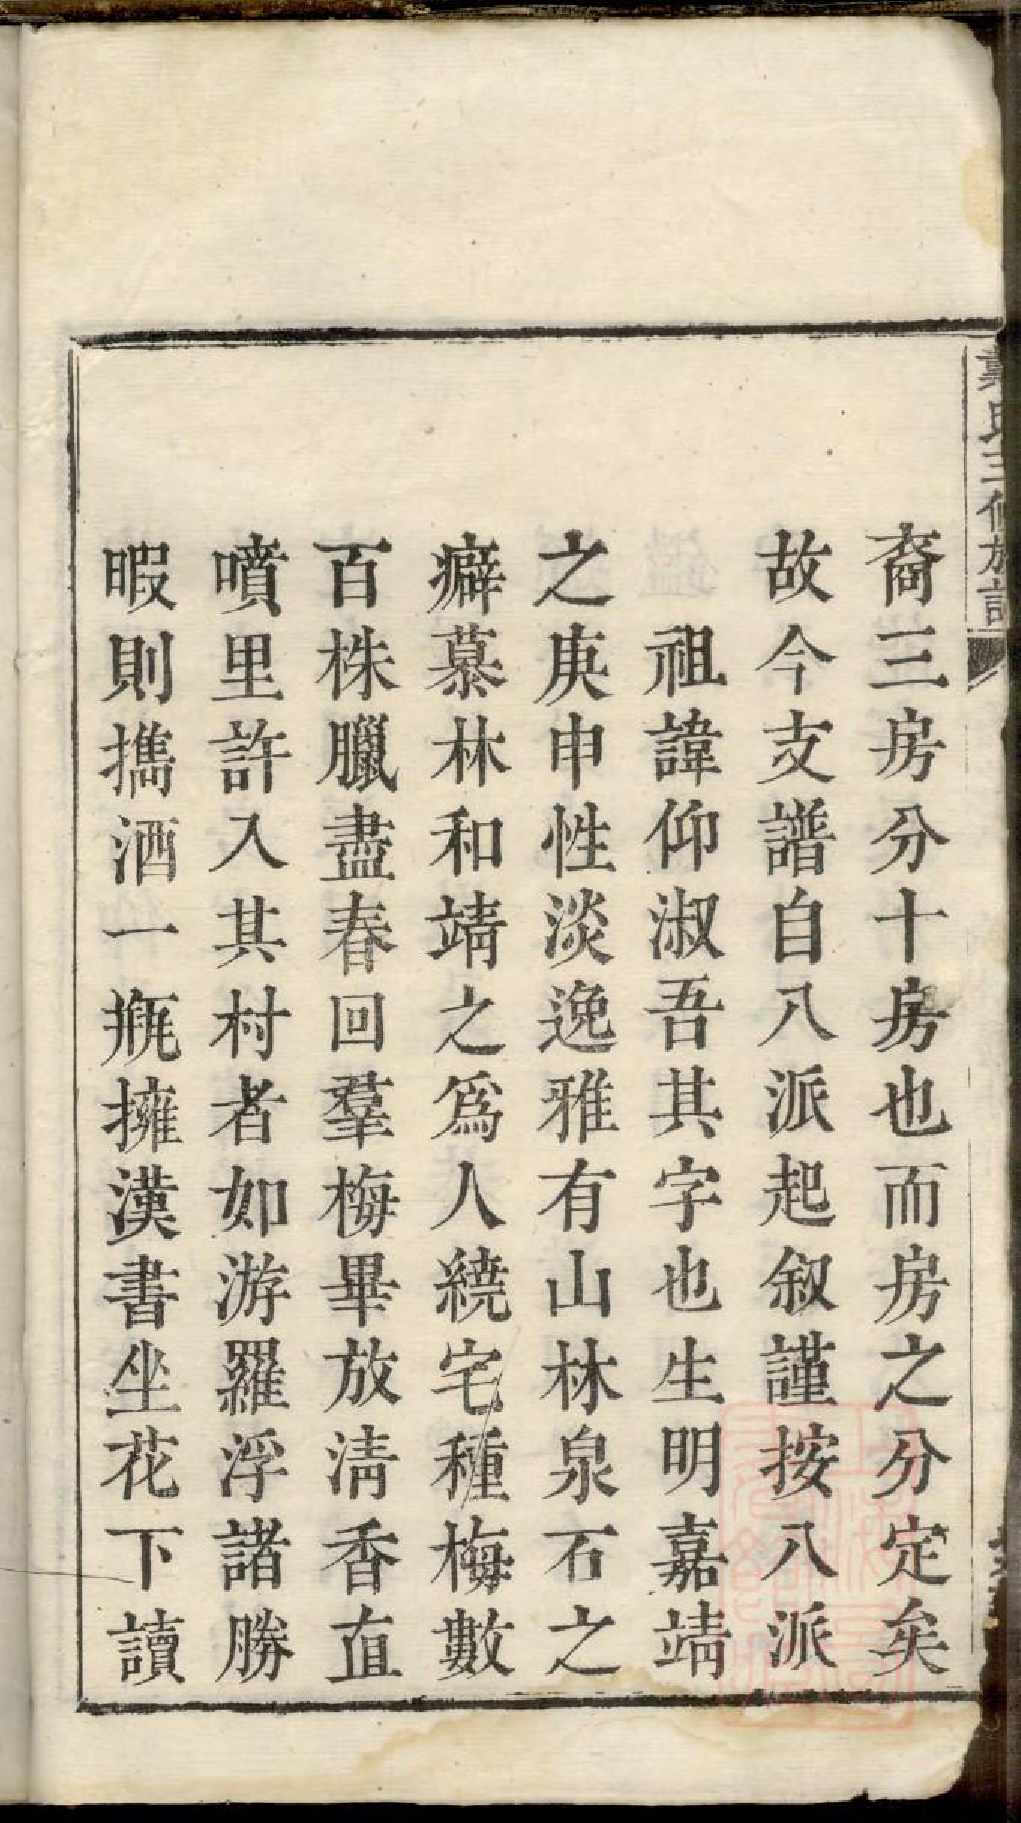 戴氏三修族譜
裔三房分十房也而房之分定矣
故今支譜自八派起叙謹按八派
祖諱仰淑吾其字也生明嘉靖
之庚申性淡逸雅有山林泉石之
癖慕林和靖之爲人繞宅種梅數
百株臘盡春回羣梅畢放清香直
噴里許入其村者如游羅浮諸勝
暇則攜酒一瓶擁漢書坐花下讀